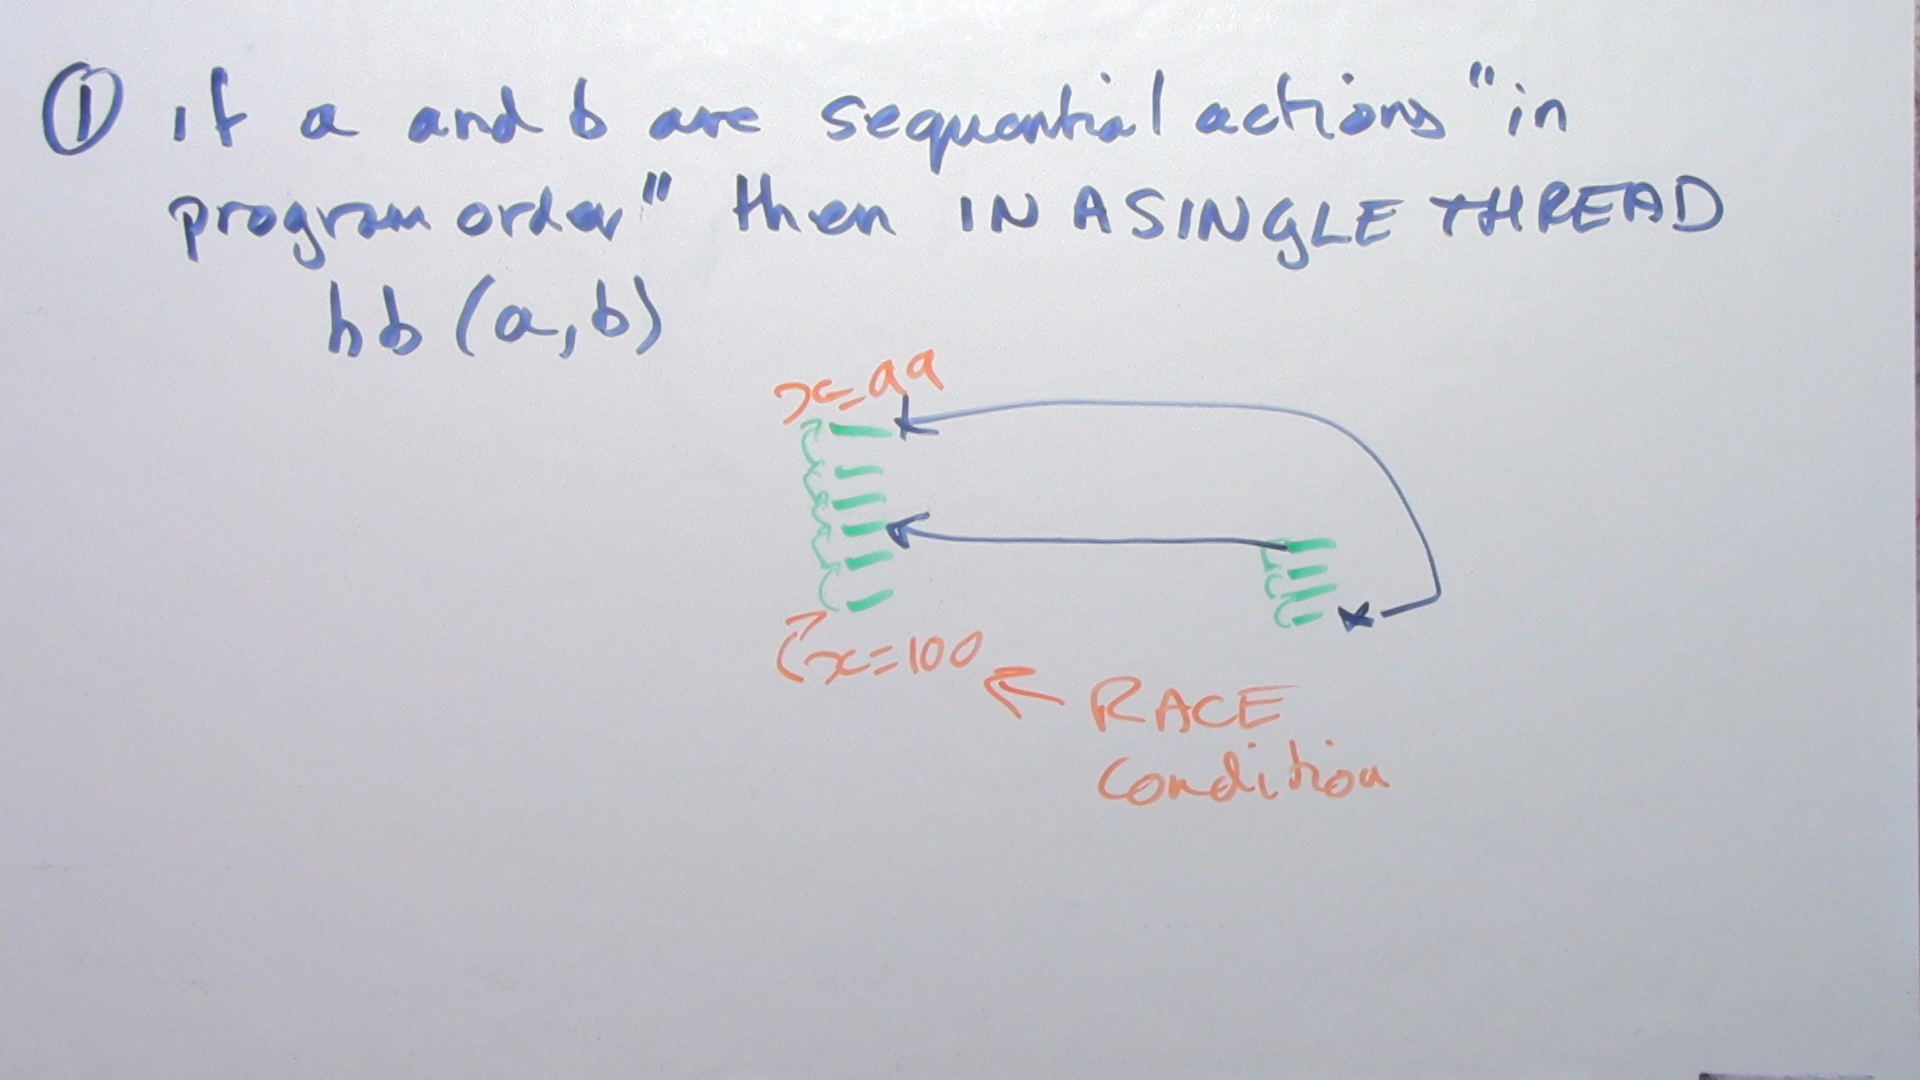 ① if a and b are sequential actions "in
program order" then IN A SINGLE THREAD
hb (a,b)
x=99
x=100
RACE
Condition